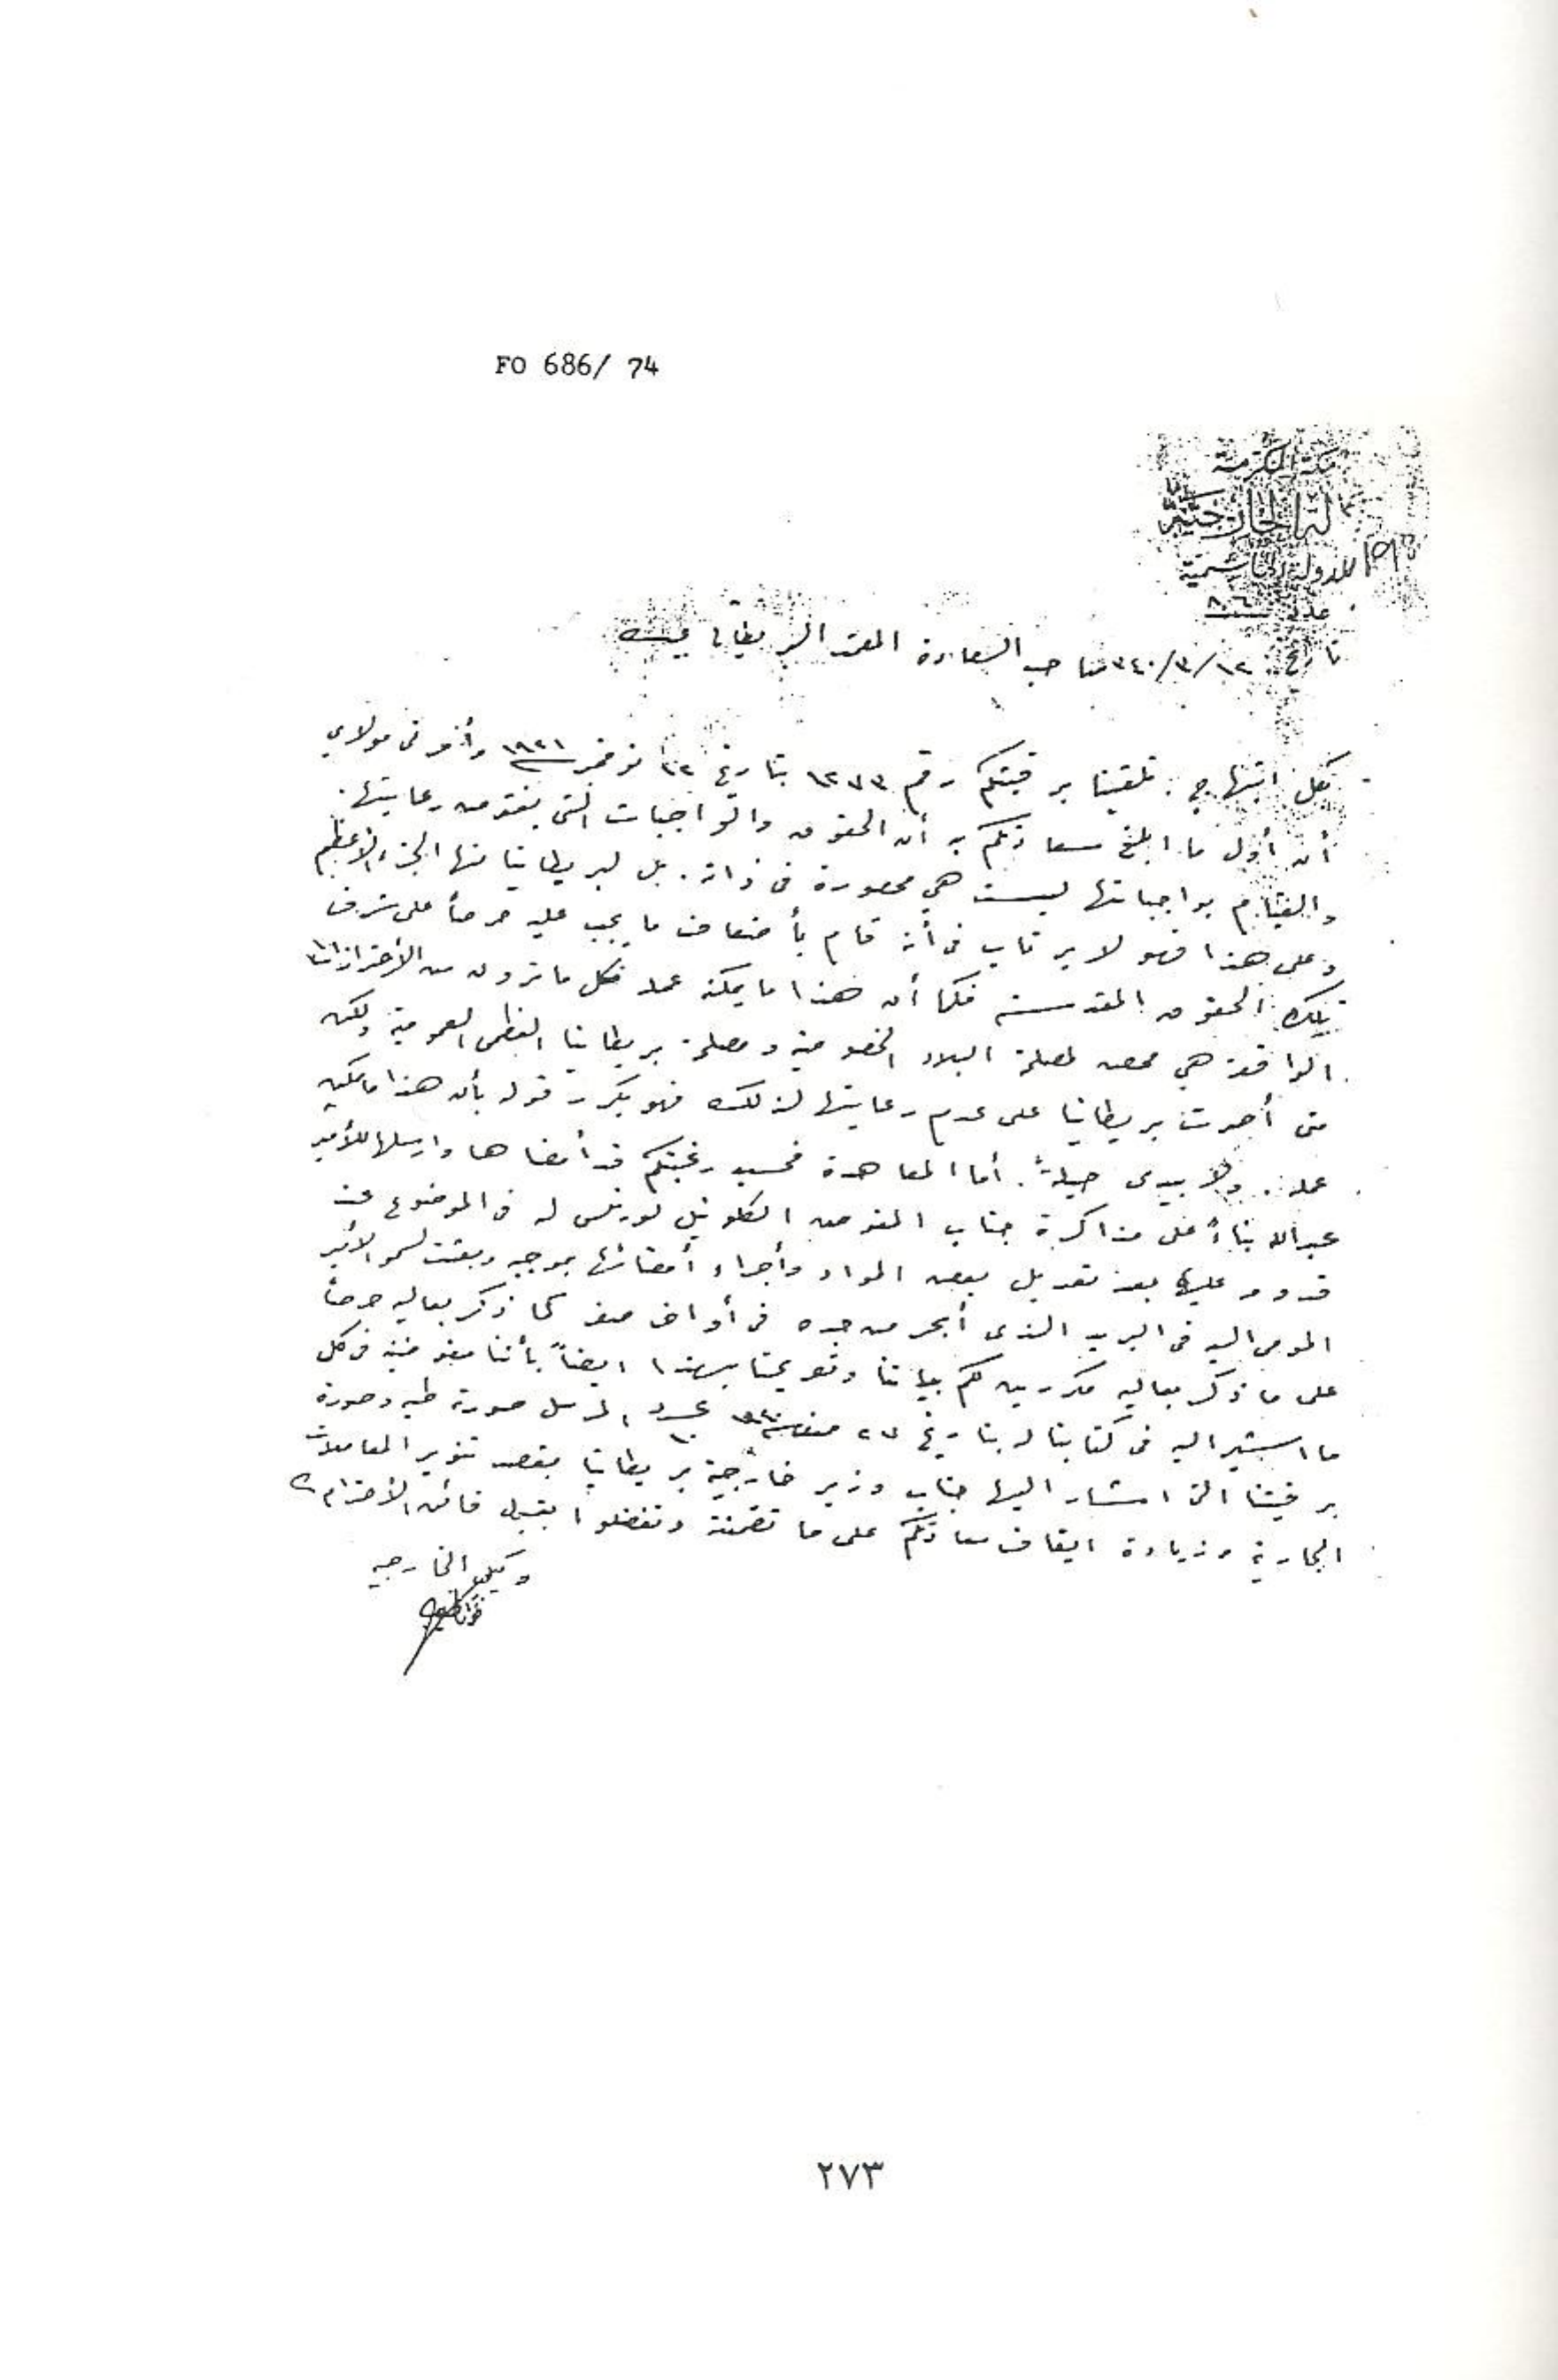 FO 686/ 74
مكة المكرمة
للدولة الهاشمية
عدد ٨٠٦
تاريخ ١٢/٣/٣٤٠ صاحب السعادة المعتمد البريطاني بجده
بكل ابتهاج تلقينا برقيتكم رقم ١٢٧٣ بتاريخ ١٢ نوفمبر ١٩٢١ وأمرني مولاي
أن أول ما ابلغ سعادتكم به أن الحقوق والواجبات التي يفتقر من رعايتها
والقيام بواجباتها ليست هي محصورة في ذاته. بل لبريطانيا منها الجزء الأعظم
وعلى هذا فهو لا يرتاب في أنه قام بأضعاف ما يجب عليه حرصاً على شرف
تلك الحقوق المقدسة فكما أن هذا ما يمكنه عمله فكل ما ترون من الأحترازات
الواقعة هي محض لمصلحة البلاد الخصوصية ومصلحة بريطانيا العظمى العمومية ولكن
متى أصرت بريطانيا على عدم رعايتها لذلك فهو يكرر قوله بأن هذا ما يمكن
عمله. ولا بيدى حيلة. أما المعاهدة فحسب رغبتكم قد أمضاها وارسلها للأمير
عبدالله بناءً على مذاكرة جناب المفوض الكلونيل لورنس له في الموضوع عند
قدومه عليه بعد تعديل بعض المواد وأجراء أمضائها بموجبه وبعثت لسمو الأمير
المومى اليه في البريد الذى أبحر من جده في أواخر صفر كما ذكر بعاليه حرصاً
على ما ذكر بعاليه مكررين لكم بياننا وتصريحنا بهذا ايضاً بأننا مفوضين في كل
ما استشير اليه في كتابنا له بتاريخ ٢٧ صفر ١٣٤٠ المرسل صورته طيه وصورة
برقيتنا التى اشار اليها جناب وزير خارجية بريطانيا بقصد تنوير المعاملات
الجارية وزيادة ايقاف سعادتكم على ما تضمنته وتفضلوا بقبول فائق الأحترام
وكيل الخارجيه
٢٧٣